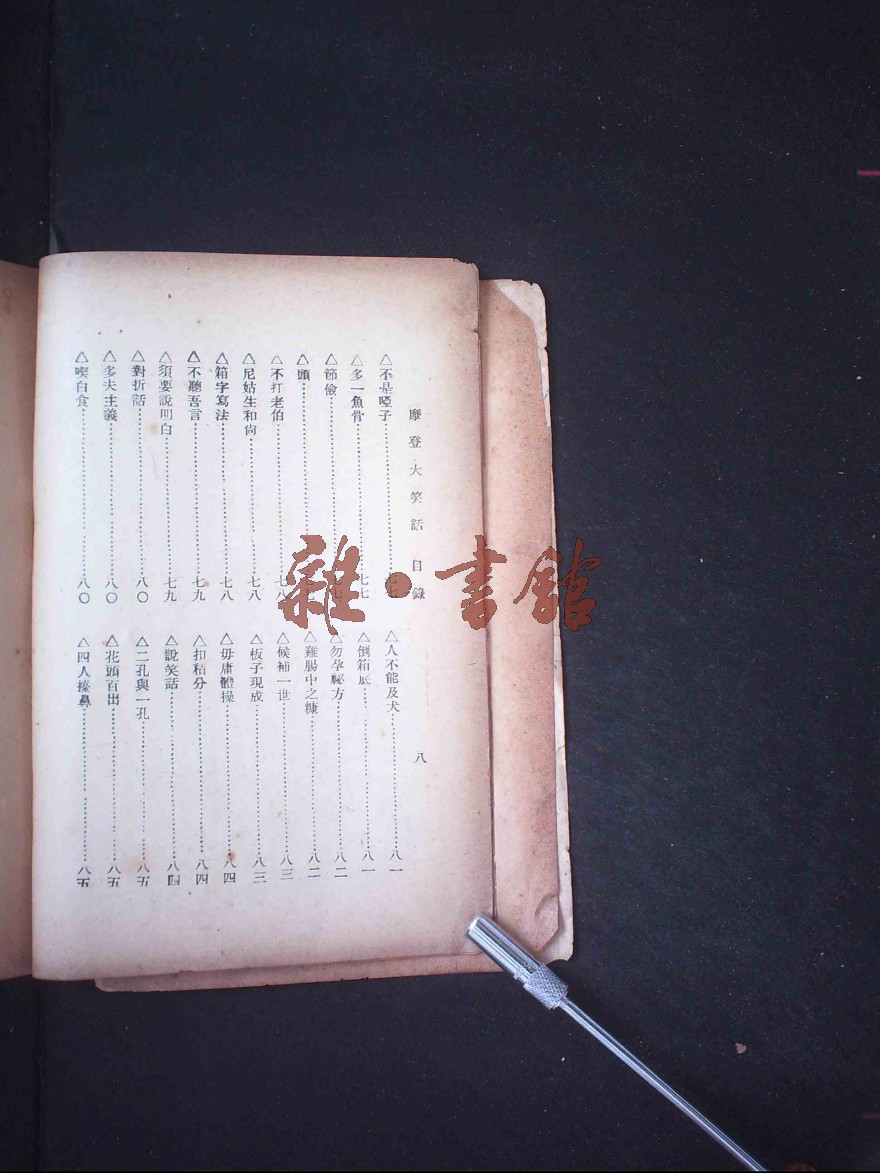 摩登大笑話 目錄 八
△不是啞子……七七
△多一魚骨……七七
△節儉……七七
△頭……七
△不打老伯……七八
△尼姑生和尚……七八
△箱字寫法……七八
△不聽吾言……七九
△須要說明白……七九
△對折話……八〇
△多夫主義……八〇
△喫白食……八〇
△人不能及犬……八一
△倒箱底……八一
△勿孕秘方……八二
△雞腸中之糠……八二
△候補一世……八三
△板子現成……八三
△毋庸體操……八四
△扣積分……八四
△說笑話……八四
△二孔與一孔……八五
△花頭百出……八五
△四人搽鼻……八五
雜·書館